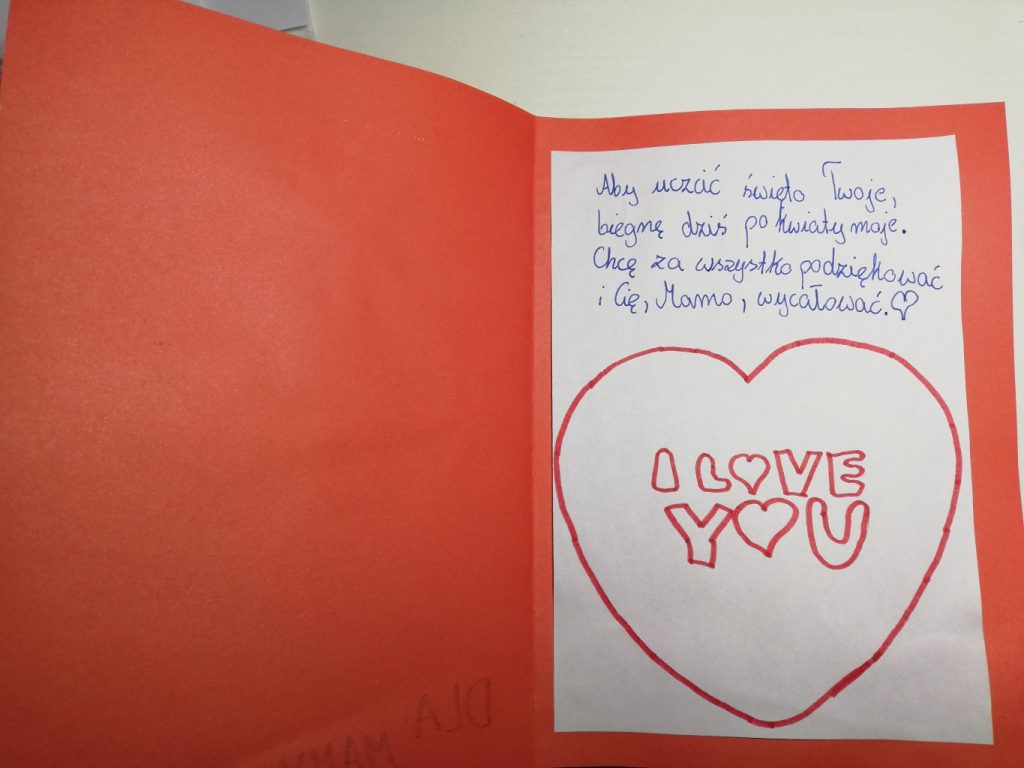 Aby uczcić święto Twoje,
biegnę dziś po kwiaty moje.
Chcę za wszystko podziękować
i Cię, Mamo, wycałować.♡
I L♡VE
Y♡U
DLA